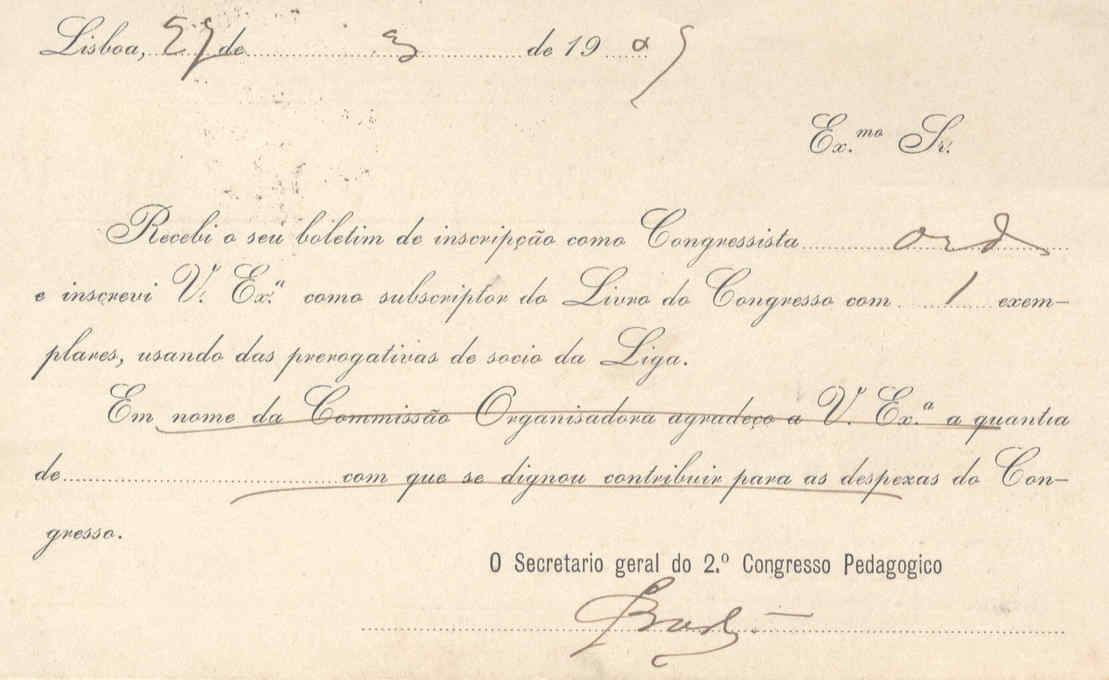 Lisboa, 27 de 3 de 1909
Ex.mo Sr.
Recebi o seu boletim de inscripção como Congressista ord
e inscrevi V. Ex.ª como subscriptor do Livro do Congresso com 1 exem-
plares, usando das prerogativas de socio da Liga.
Em nome da Commissão Organisadora agradeço a V. Ex.ª a quantia
de com que se dignou contribuir para as despezas do Con-
gresso.
O Secretario geral do 2.º Congresso Pedagogico